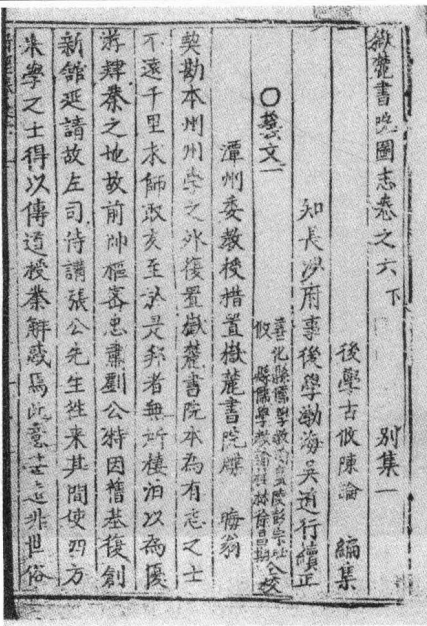 嶽麓書院圖志卷之六下 別集一
後學古攸陳論 編集
知長沙府事後學渤海吳道行續正
善化縣儒學教 彭宗 
攸縣儒學教諭 仝校
○藝文一
潭州委教授措置嶽麓書院牒 晦翁
契勘本州州學之外復置嶽麓書院本為有志之士
不遠千里求師取友至於是邦者無所棲泊以為優
游肄業之地故前帥樞密忠肅劉公特因舊基復創
新館延請故左司侍講張公先生往來其間使四方
來學之士得以傳道授業解惑焉此意甚遠非世俗